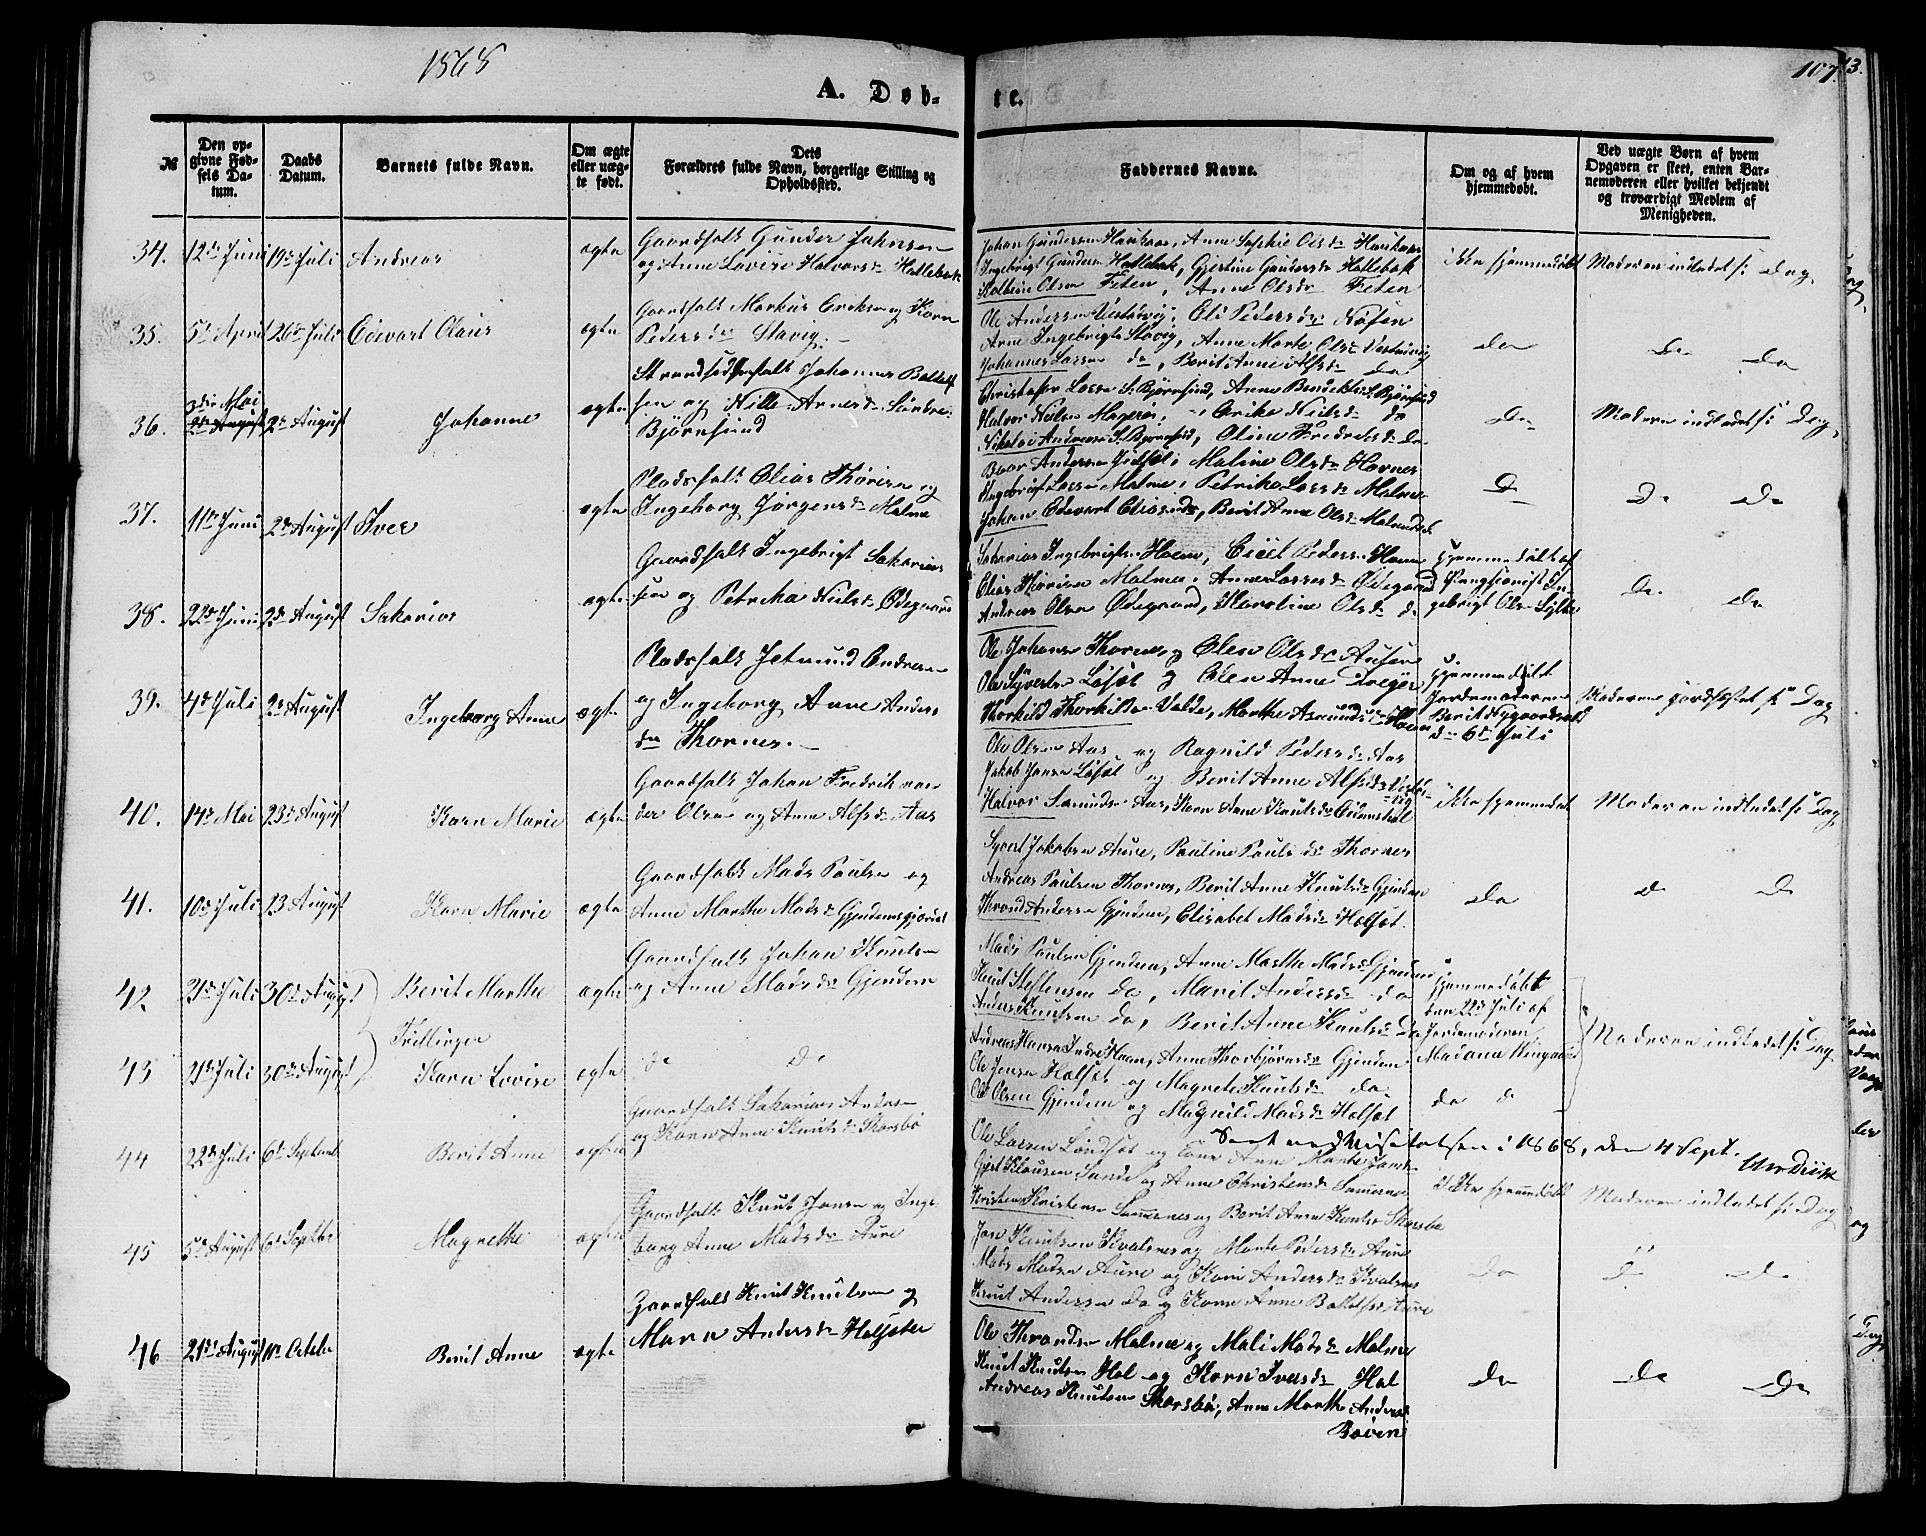 1868
A. Døb-
te.
107
13.
№
Den op-
givne Fød-
sels Da-
tum.
Daabs
Datum.
Barnets fulde Navn.
Om ægte
eller uæg-
te født.
Dets
Forældres fulde Navn, borgerlige Stilling og
Opholdssted.
Faddernes Navne.
Om og af hvem
hjemmedøbt.
Ved uægte Børn af hvem
Opgaven er skeet, enten Bar-
nemoderen eller hvilket bekjendt
og troværdigt Medlem af
Menigheden.
34. 12te Juni 19de Juli Andreas ægte
Gaardfolk Gunder Johnsen
og Anne Lovise Halvorsdr Hatlebak
Johan Gundersen Haukaas, Anne Sophie Olsdr Haukaas
Ingebrigt Gundersen Hatlebak, Gjertine Gundersdr Hatlebak
Kolbein Olsen Feten, Anne Olsdr Feten
Ikke hjemmedøbt Moderen indledet s: Dag
35. 5te April 26de Juli Edevart Olaus ægte
Gaardfolk Markus Eriksen og Karn
Pedersdr Stavig.
Ole Andersen Vestavig, Eli Pedersdr Nøsen
Arne Ingebrigts Stavig, Anne Marte Olsdr Vestavig
Johannes Lassen do, Berit Anne Alfsdr do
do do do
36. 3die Mai 2den August 2den August Johanne ægte
Strandsidderfolk Johannes
sen og Nille Arnesdr Søndre
Bjørnsund
Christofer Lassen S. Bjørnsund, Anne Bendekte S. Bjørnsund
Halvor Nielsen Magerøi, Erike Nielsdr do
Nikolai Andreas S. Bjørnsund, Oline Fredriksdr do
do Moderen indledet s: Dag
37. 11te Juni 2den August Iver ægte
Pladsfolk Elias Thorisen og
Ingeborg Jørgensdr Malme
Baar Andersen Malene Olsdr Havnes
Ingebrigt Lassen Malme, Petrike Larsdr Malme
Johan Edevart Berit Anne Olsdr
do do do
38. 22de Juni 2den August Sakarias ægte
Gaardfolk Ingebrigt Sakarias
sen og Petrikka Nielsdr Ødegaard
Sakarias Ingebrigtsen Hoem, Pedersdr Hoem
Elias Thorisen Malme, Anne Lassesdr Ødegaard
Andreas Olsen Ødegaard, Karoline Olsdr do
Hjemmedøbt af
Pensionist In-
gebrigt Olsen Sylte
do do
39. 4de Juli 2den August Ingeborg Anne ægte
Pladsfolk Jetmund Andersen
og Ingeborg Anne Anders
dr Thornes.
Ole Johansen Thornes og Elen Olsdr
Ole Syversen Løset og Elen Anne
Thorkild Thorkildsen Valde, Marthe Asmundsdr Hoem
Hjemmedøbt
Jordemoderen
Berit
d. 6te Juli
Moderen jordfæstet s: Dag
40. 14de Mai 23de August Karn Marie ægte
Gaardfolk Johan Fredrik
der Olsen og Anne Alfsdr Aas
Ole Olsen Aas og Ragnild Pedersdr Aas
Jakob Jansen Løset og Berit Anne Alfsdr
Halvor Amundsen Aas, Karn Anne Knutsdr
ikke hjemmedøbt Moderen indledet s: Dag
41. 10de Juli 23 August Karn Marie ægte
Gaardfolk Mads Paulsen og
Anne Marthe Madsdr Gjendemsgjordet
Syvert Jakobsen Aure, Pauline Paulsdr Thornes
Andreas Paulsen Thornes, Berit Anne Knutsdr Gjendem
Thrond Andersen Gjendem, Elisabet Madsdr Holset.
do do do
42 21de Juli 30de August Berit Marthe ægte
Tvillinger
Gaardfolk Johan Knutsen
og Anne Madsdr Gjendem
Mads Paulsen Gjendem, Anne Marthe Madsdr Gjendem
Knut Steffensen do, Marit Andersdr do
Anders Knutsen do, Berit Anne Knutsdr do
Hjemmedøbt
den 22de Juli af
Jordemoderen
Madame
Moderen indledet s: Dag
43 21de Juli 30de August Karn Lovise ægte
do do
Andreas Hansen Indre Hoem, Anne Thorbjørnsdr Gjendem
Ole Jensen Holset og Magrete Knutsdr do
Ole Olsen Gjendem og Magnild Madsdr Holset
do do
44 22de Juli 6te Septemb. Berit Anne ægte
Gaardfolk Sakarias Anders
og Karn Anne Knutsdr Skarsbø
Seet ved Visitatsen i 1868, den 4 Sept.
Ole Lassen Lindset og Anne Marte
Gjert Klausen Sande og Anne Christensdr
Kristen Kristensen og Berit Anne Knutsdr Skarsbø
Ikke hjemmedøbt Moderen indledet s: Dag
45 5te August 6te Septbr Magrethe ægte
Gaardfolk Knut Jansen og Inge
borg Anne Madsdr Aure
Jon Knutsen Kvalsnes og Marte Pedersdr Aure
Mads Madsen Aure og Kari Andersdr Kvalsnes
Knut Andersen do og Karn Anne Aure
do do do
46 21de August 11te Octobr Berit Anne ægte
Gaardfolk Knut Knutsen og
Maren Andersdr Holset
Ole Throndsen Malme og Mali Madsdr Malme
Knut Knutsen Hol og Karn Iversdr Hol
Andreas Knutsen Skarsbø, Anne Marthe Andersdr
Bøven
do do do